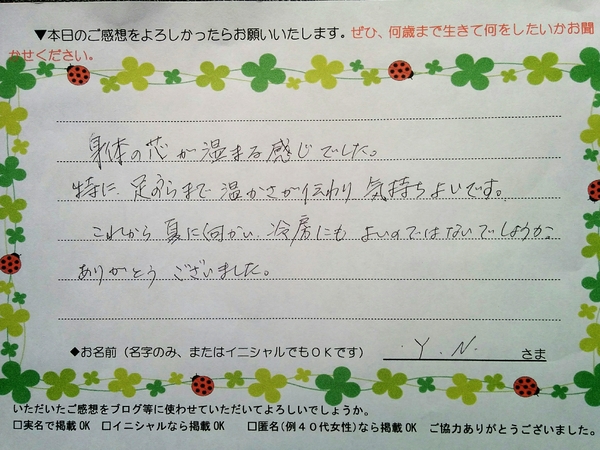 ▼本日のご感想をよろしかったらお願いいたします。ぜひ、何歳まで生きて何をしたいかお聞
かせください。
身体の芯が温まる感じでした。
特に、足のうらまで温かさが伝わり気持ちよいです。
これから夏に向かい、冷房にもよいのではないでしょうか。
ありがとうございました。
◆お名前（名字のみ、またはイニシャルでもＯＫです） Y.N. さま
いただいたご感想をブログ等に使わせていただいてよろしいでしょうか。
□実名で掲載OK □イニシャルなら掲載OK □匿名(例４０代女性)なら掲載OK ご協力ありがとうございました。